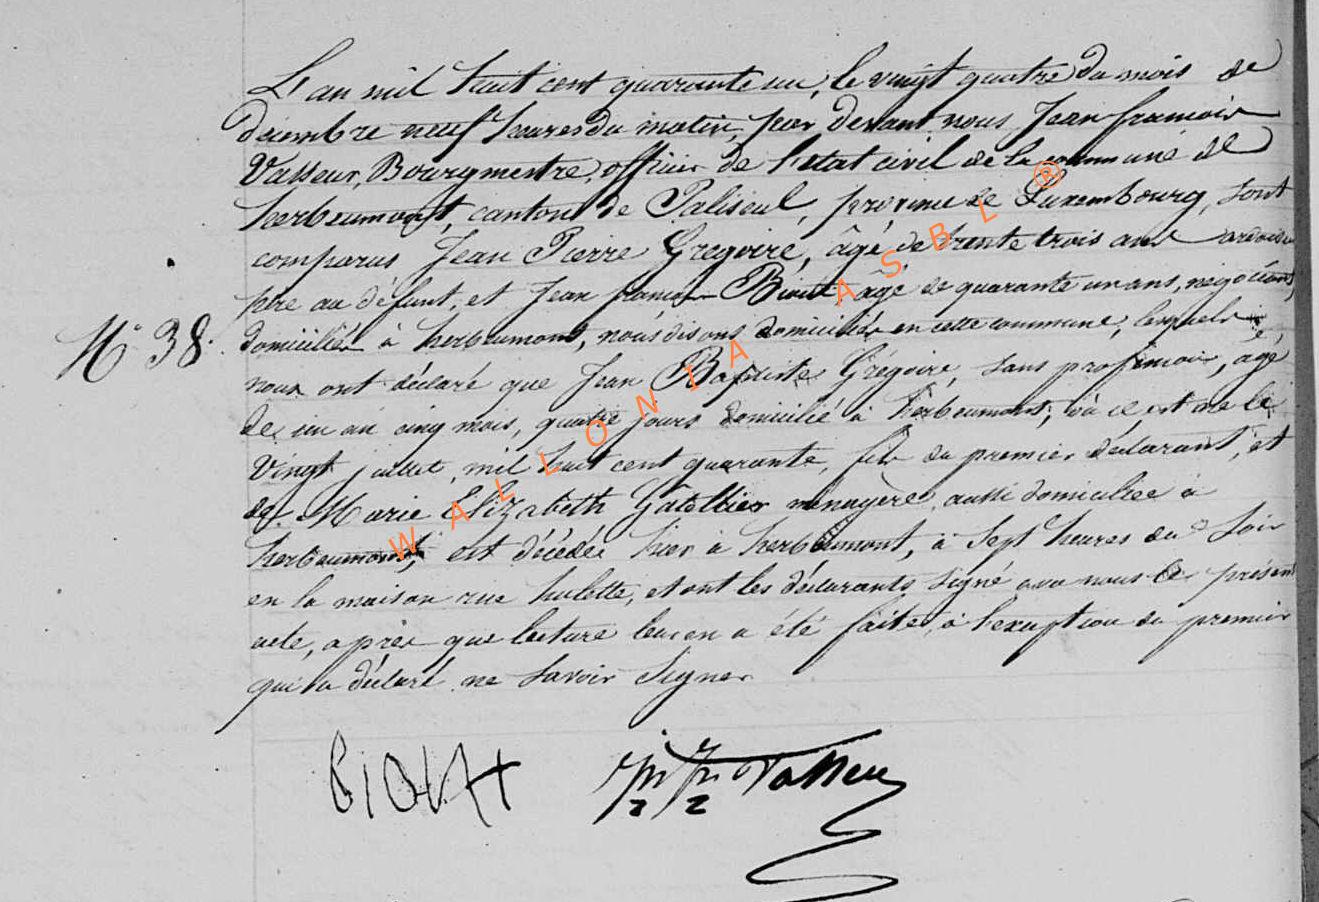 L'an mil huit cent quarante un, le vingt quatre du mois de
décembre neuf heures du matin, par devant nous Jean françois
Vasseur, Bourgmestre, officier de l'état civil de la commune de
herbeumont, canton de Paliseul, province de Luxembourg, sont
comparus Jean Pierre Gregoire, âgé de trente trois ans
père au défunt, et Jean françois Biout âgé de quarante un ans, négociant,
domiciliés à herbeumont, nous disons domiciliés en cette commune, lesquels
N° 38.
nous ont déclaré que Jean Baptiste Grégoire, sans profession, âgé
de un an cinq mois, quatre jours domicilié à herbeumont, où il est né le
vingt juillet, mil huit cent quarante, fils du premier déclarant, et
de Marie Elizabeth ménagère, aussi domiciliée à
herbeumont, est décédé hier à herbeumont, à sept heures du soir
en la maison rue hulette, et ont les déclarants signé avec nous le présent
acte, après que lecture leur en a été faite, à l'exception du premier
qui a déclaré ne savoir signer
Vasseur
WALLONIA ASBL ®